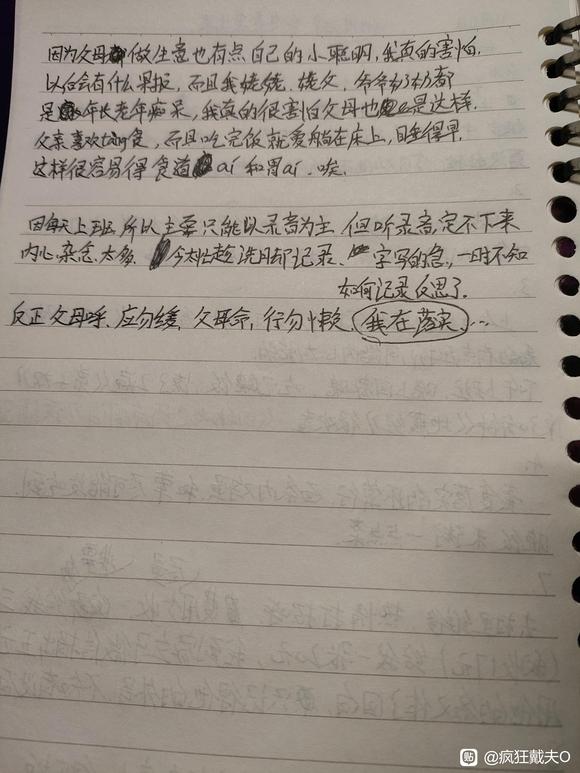 因为父母做生意也有点自己的小聪明,我真的害怕.
以后会有什么果报,而且我姥姥.姥爷,爷爷奶奶都
是年长老年痴呆,我真的很害怕父母也是这样.
父亲喜欢tang食,而且吃完饭就爱躺在床上,睡得早.
这样很容易得食道ai和胃ai.唉.
因每天上班,所以主要只能以录音为主.但听录音,定不下来
内心杂念.太多.今太忙趁洗脚记录.字写的急,一时不知
如何记录反思了.
反正父母呼,应勿缓,父母命,行勿懒,我在落实...
贴 @疯狂戴夫O